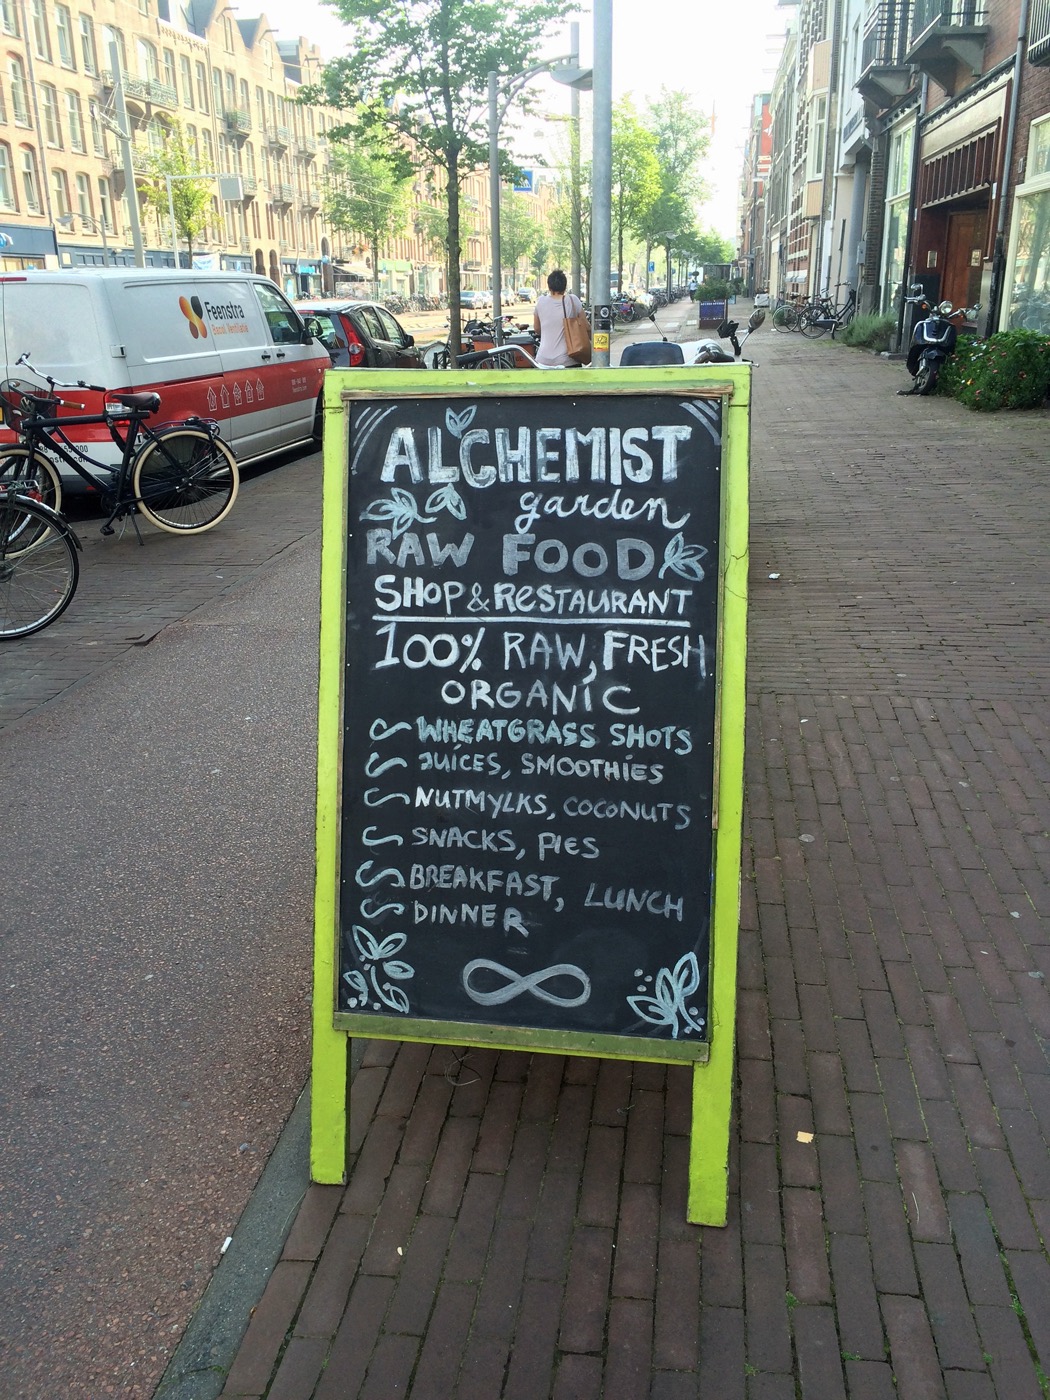 Feenstra
ALCHEMIST
garden
RAW FOOD
SHOP & RESTAURANT
100% RAW, FRESH
ORGANIC
WHEATGRASS SHOTS
JUICES, SMOOTHIES
NUTMYLKS, COCONUTS
SNACKS, PIES
BREAKFAST, LUNCH
DINNER